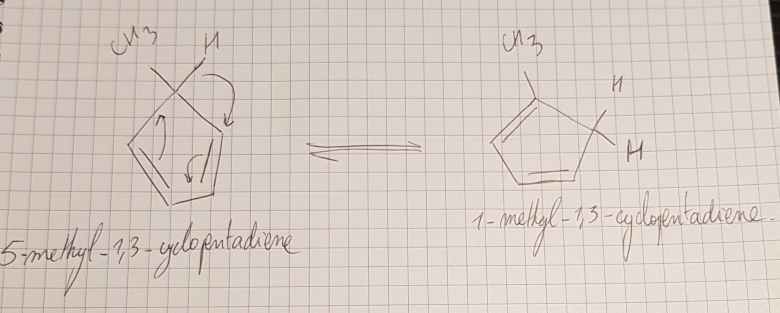 CH3 H
CH3
H
H
5-methyl-1,3-cyclopentadiene
1-methyl-1,3-cyclopentadiene.